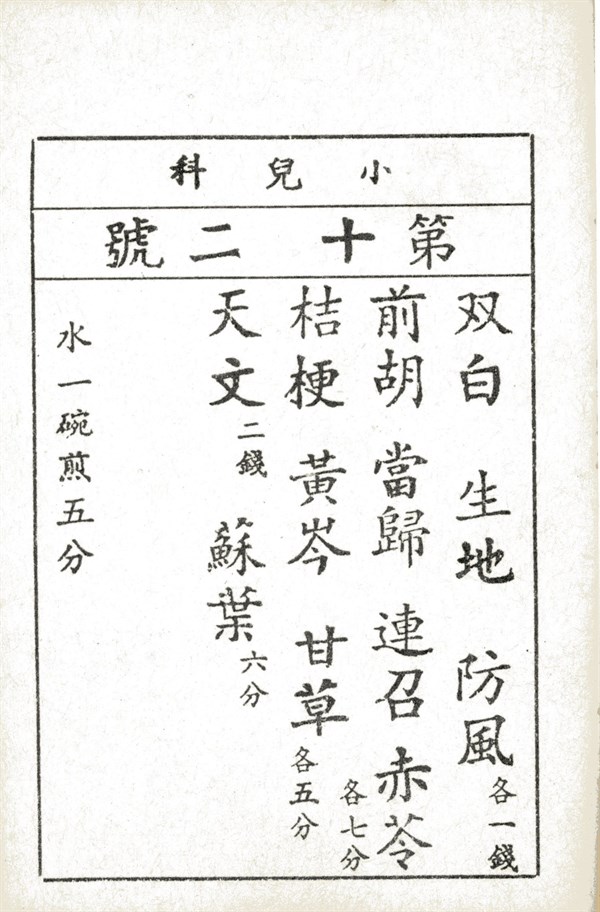 小兒科
第十二號
双白 生地 防風各一錢
前胡 當歸 連召 赤苓各七分
桔梗 黃岑 甘草各五分
天文二錢 蘇葉六分
水一碗煎五分